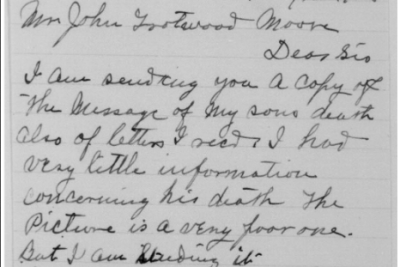 Mr John Trotwood Moore
Dear Sir
I am sending you a copy of
the Message of my sons death
also of letters I recd I had
very little information
concerning his death The
Picture is a very poor one.
But I am sending it